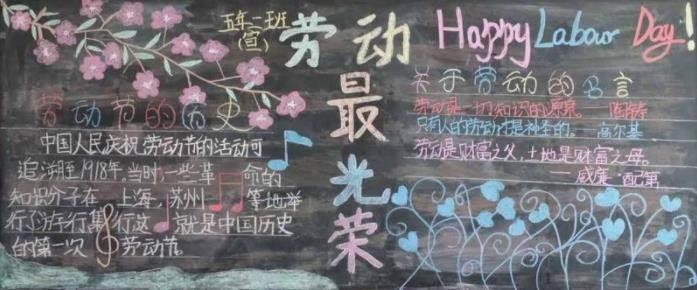 五年一班
(宣)
劳动
最
光
荣
Happy Labour Day!
劳动节的历史
中国人民庆祝劳动节的活动可
追溯至1918年,当时,一些革命的
知识分子在上海,苏州等地举
行了游行集行这就是中国历史
的第一次劳动节
关于劳动的名言
劳动是一切知识的源泉。 陶铸
只有人的劳动才是神圣的。 高尔基
劳动是财富之父,土地是财富之母。
——威廉·配第